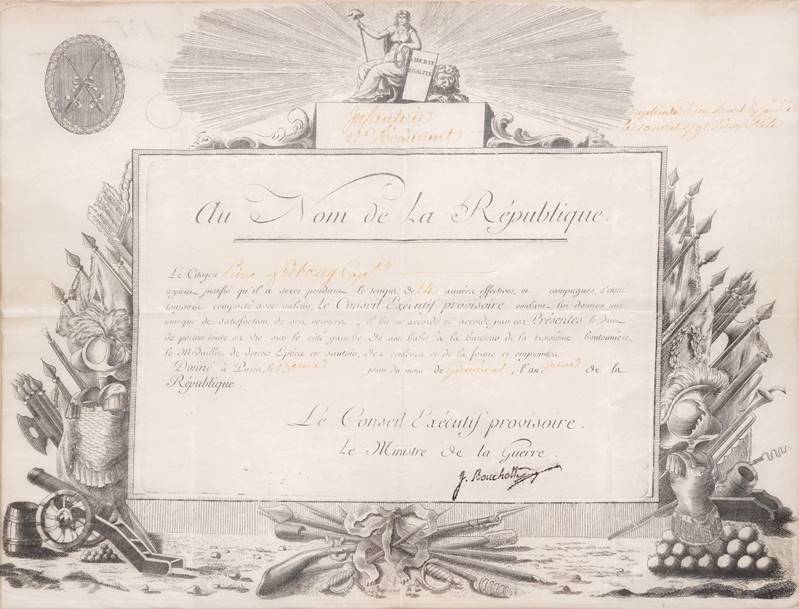 LIBERTÉ
EGALITÉ
Infanterie
Régiment
Au Nom de La République.
Le Citoyen
ayant justifié qu'il a servi pendant le temps de 24 années effectives, et campagnes, s'étant
toujours comporté avec valeur, le Conseil Exécutif provisoire voulant lui donner une
marque de satisfaction de ses services, il lui a accordé et accorde par ces Présentes le droit
de porter toute sa vie sur le côté gauche de son habit, à la hauteur de la troisième boutonnière,
le Médaillon de deux Epées en sautoir, des couleurs et de la forme ci empreintes.
Donné à Paris, le jour du mois de Germinal, l'an de la
République.
Le Conseil Exécutif provisoire.
Le Ministre de la Guerre.
J. Bouchotte